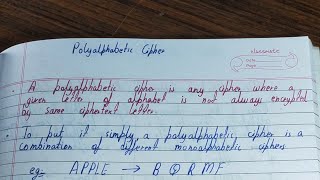 Polyalphabetic Cipher
classmate
Date
Page
• A polyalphabetic cipher is any cipher where a
given letter of alphabet is not always encrypted
by same ciphertext letter.
• To put it simply a polyalphabetic cipher is a
combination of different monoalphabetic ciphers
eg. APPLE → B Q R M F